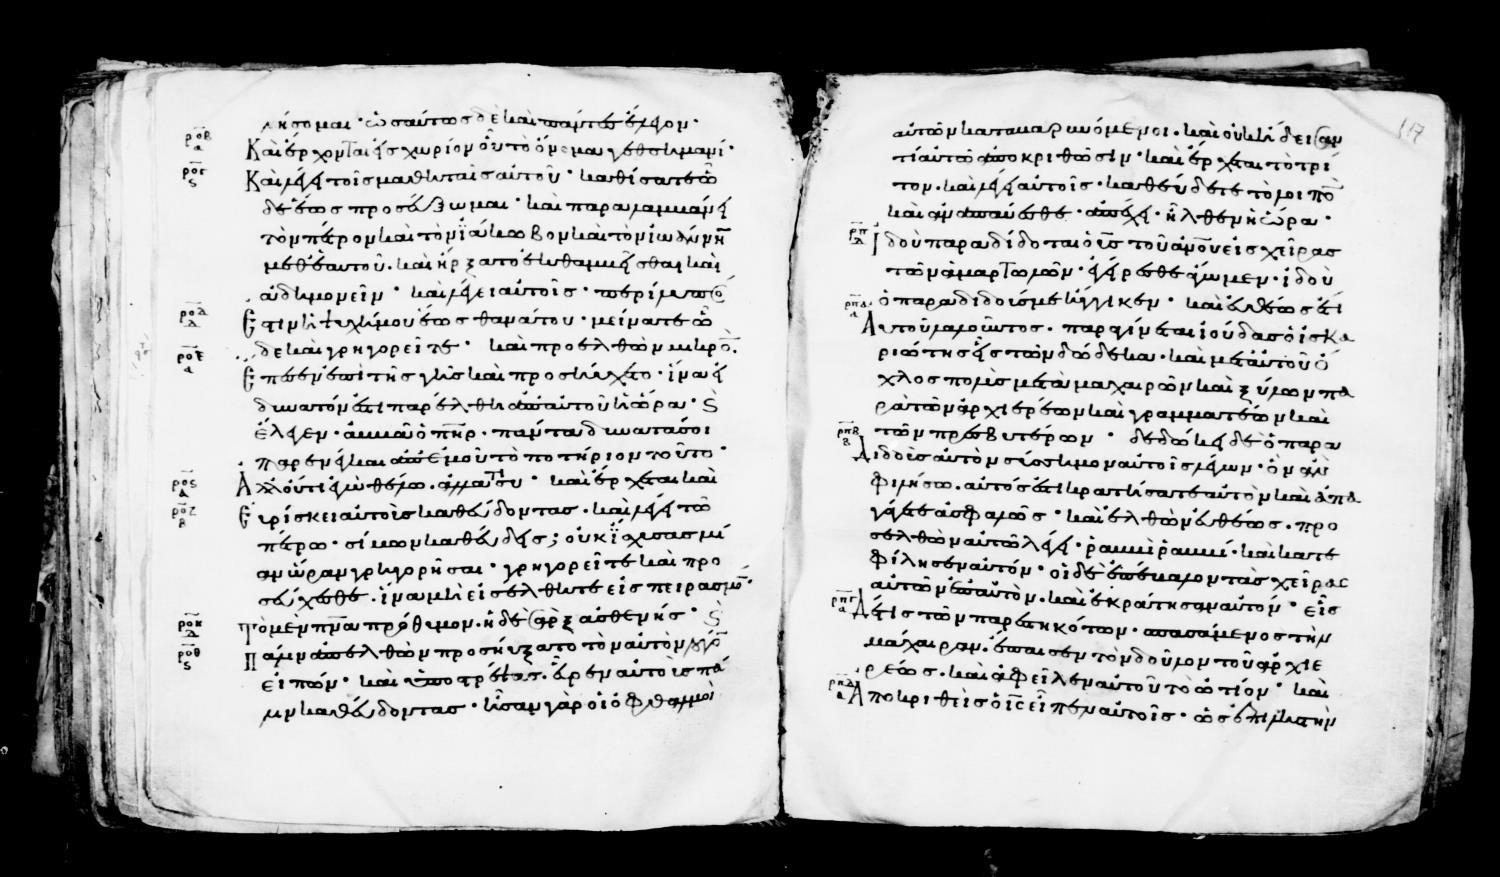 ροβ
α
ρογ
ς
ροδ
δ
ροε
α
ρος
δ
ροζ
β
ροη
δ
ροθ
ς
νήσομαι· ὡσαύτως δὲ καὶ πάντες ἔλεγον·
Καὶ ἔρχονται εἰς χωρίον οὗ τὸ ὄνομα γεθσημανί·
Καὶ λέγει τοῖς μαθηταῖς αὐτοῦ· καθίσατε ὧ
δε ἕως προσεύξωμαι· καὶ παραλαμβάνει
τὸν πέτρον καὶ τὸν ϊάκωβον καὶ τὸν ἰωάννην
μεθ ἑαυτοῦ. καὶ ἤρξατο ἐκθαμβεῖσθαι καὶ
ἀδημονεῖν· καὶ λέγει αὐτοῖς· περίλυπό
Εστιν ἡ ψυχή μου ἕως θανάτου· μείνατε ὧ
δε καὶ γρηγορεῖτε· καὶ προσελθὼν μικρὸ.
Επεσεν ἐπὶ τῆς γῆς καὶ προσηύχετο· ἵνα εἰ
δυνατόν ἐστι παρέλθη ἀπ αὐτοῦ ἡ ὥρα· ϗ
ἔλεγεν· ἀββᾶ ὁ πηρ· πάντα δυνατά σοι
παρένεγκαι ἀπ ἐμοῦ τὸ ποτήριον τοῦτο·
Αλλ οὐ τί ἐγὼ θέλω. ἀλλά τι σύ· καὶ ἔρχεται καὶ
Ευρίσκει αὐτοὺς καθεύδοντας. καὶ λέγει τῶ
πέτρω· σίμων καθεύδεις; οὐκ ἴσχυσας μί
αν ὥραν γρηγορῆσαι· γρηγορεῖτε καὶ προ
σεύχεσθε. ἵνα μὴ εἰσέλθητε εἰς πειρασμό·
Τὸ μὲν πνα πρόθυμον. ἡ δὲ σὰρξ ἀσθενής· ϗ
Πάλιν ἀπελθὼν προσηύξατο τὸν αὐτὸν λόγον
εἰπών· καὶ ὑποστρέψας. εὗρεν αὐτοὺς πά
λιν καθεύδοντας· ἦσαν γὰρ οἱ ὀφθαλμοὶ
117
αὐτῶν καταβαρυνόμενοι. καὶ οὐκ ἤδεισαν
τί αὐτῶ ἀποκριθῶσιν· καὶ ἔρχεται τὸ τρί
τον. καὶ λέγει αὐτοῖς· καθεύδετε τὸ λοιπὸ
καὶ ἀναπαύεσθε· ἀπέχει· ἦλθεν ἡ ὥρα·
ρπ
δ
Ιδοὺ παραδίδοται ὁ υς τοῦ ανου εἰς χεῖρας
τῶν ἁμαρτωλῶν· ἐγείρεσθε ἄγωμεν· ἰδοὺ
ρπα
α
ὁ παραδιδούς με ἤγγικεν· καὶ εὐθέως ἔτι
Αυτοῦ λαλοῦντος. παραγίνεται ἰούδας ὁ ἰσκα
ριώτης εἷς τῶν δώδεκα· καὶ μετ αὐτοῦ ὄ
χλος πολὺς μετὰ μαχαιρῶν καὶ ξύλων πα
ρὰ τῶν ἀρχιερέων καὶ γραμματέων καὶ
ρπβ
β
τῶν πρεσβυτέρων· δεδώκει δὲ ὁ παρα
Διδοὺς αὐτὸν σύσσημον αὐτοῖς λέγων· ὃν ἂν
φιλήσω. αὐτός ἐστι κρατήσατε αὐτὸν καὶ ἀπα
γάγετε ἀσφαλῶς· καὶ ἐλθὼν εὐθέως. προ
σελθὼν αὐτῶ λέγει· ῥαββὶ ῥαββί· καὶ κατε
φίλησεν αὐτόν· οἱ δὲ ἐπέβαλον τὰς χεῖρας
αὐτῶν ἐπ αὐτὸν. καὶ ἐκράτησαν αὐτόν· εἷς
ρπγ
α
Δέ τις τῶν παρεστηκότων. σπασάμενος τὴν
μάχαιραν. ἔπαισεν τὸν δοῦλον τοῦ ἀρχιε
ρέως. καὶ ἀφεῖλεν αὐτοῦ τὸ ὠτίον· καὶ
ρπδ
α
Αποκριθεὶς ὁ ις εἶπεν αὐτοῖς· ὡς ἐπὶ ληστὴν